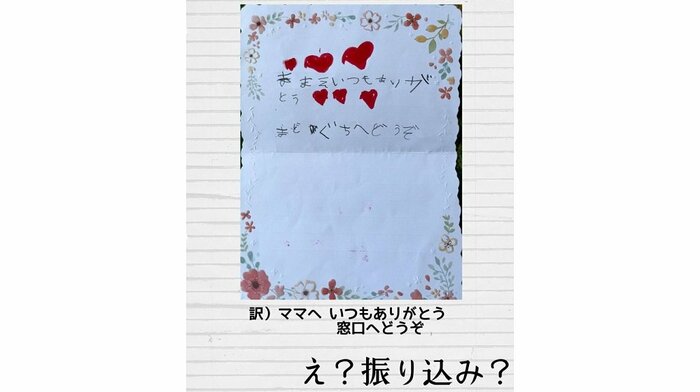 ままえいつもありが
とう
まどぐちへどうぞ
訳）ママへ いつもありがとう
窓口へどうぞ
え？振り込み？